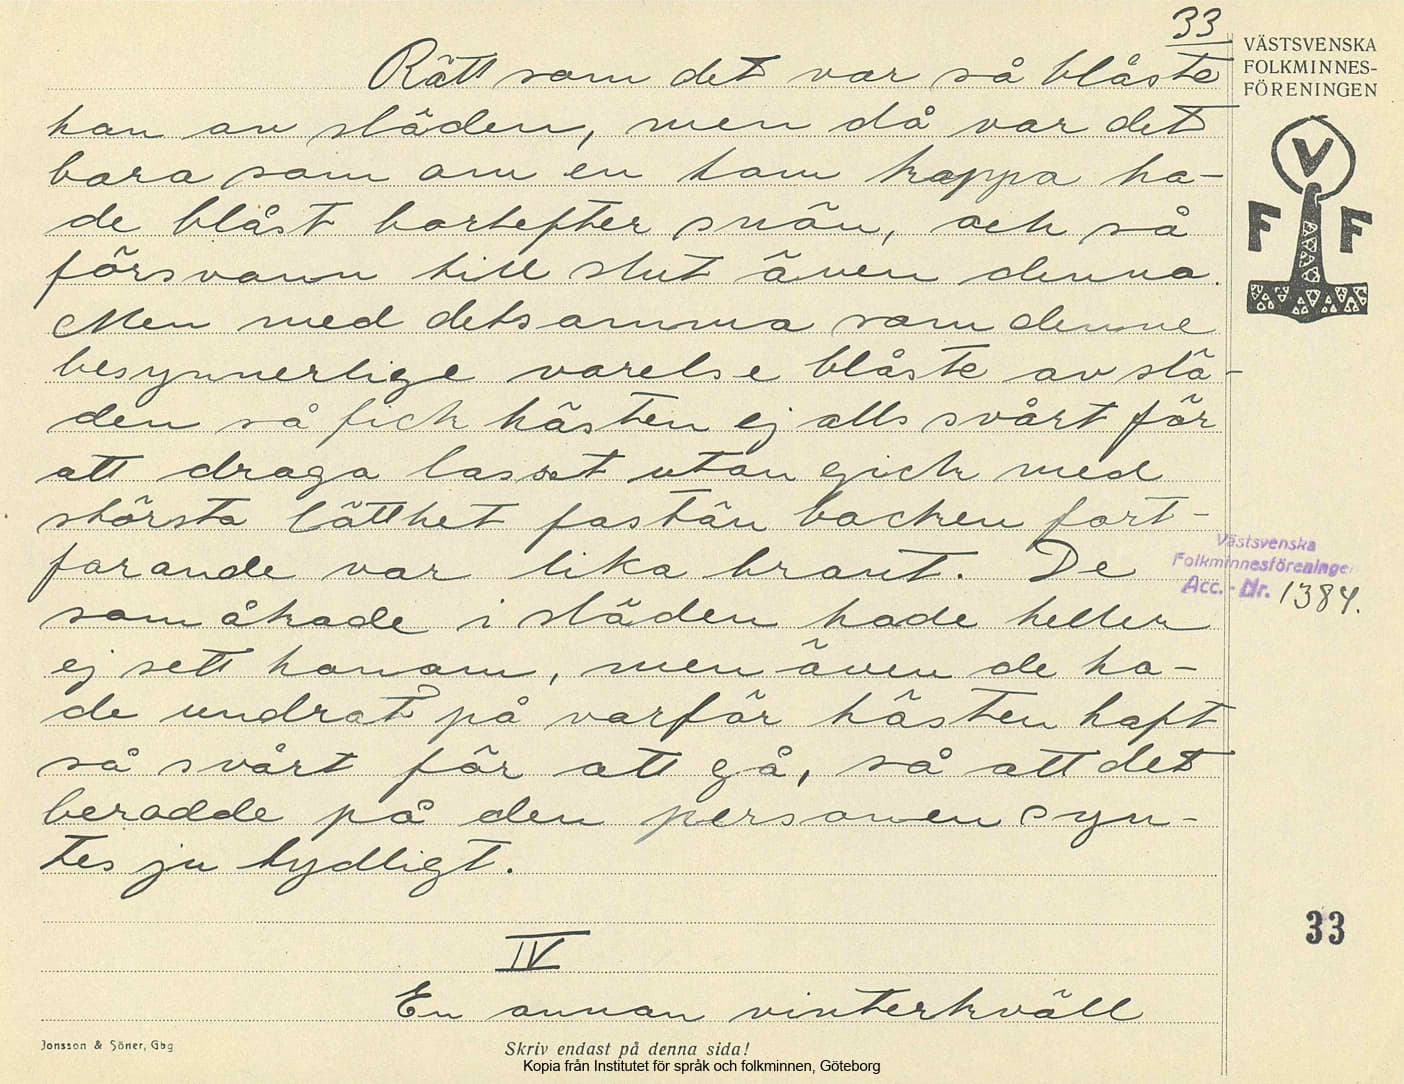 33
VÄSTSVENSKA
FOLKMINNES-
FÖRENINGEN
V
F F
Rätt som det var så blåste
han av släden, men då var det
bara som om en tom kappa ha-
de blåst bortefter snön, och så
försvann till slut även denna.
Men med detsamma som denne
besynnerlige varelse blåste av slä-
den så fick hästen ej alls svårt för
att draga lasset utan gick med
största lätthet fastän backen fort-
farande var lika brant. De
som åkade i släden hade heller
ej sett honom, men även de ha-
de undrat på varför hästen haft
så svårt för att gå, så att det
berodde på den personen syn-
tes ju tydligt.
Västsvenska
Folkminnesföreningen
Acc. - Nr. 1384.
33
IV
En annan vinterkväll
Jonsson & Söner, Gbg
Skriv endast på denna sida!
Kopia från Institutet för språk och folkminnen, Göteborg